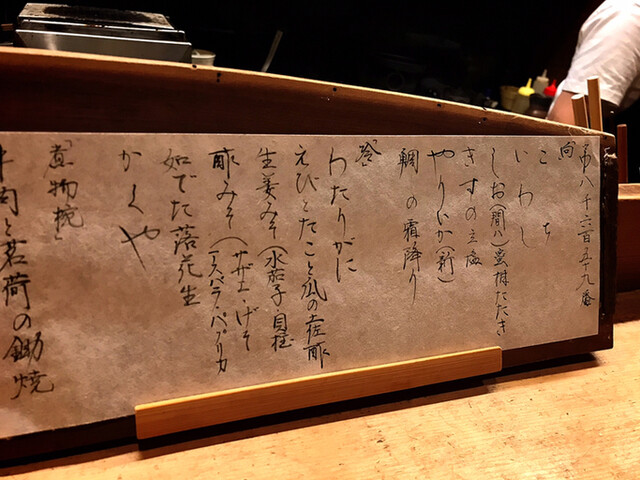 第八千二百五十九番
「向」
こち
いわし
しお(間八)蛋柑たたき
きすの立塩
やりいか(新)
鯛の霜降り
「登」
わたりがに
えびとたこと瓜の土佐酢
生姜みそ(水茄子・貝柱
酢みそ(サザエ・げそ
(アスパラ・パプリカ
ゆでた落花生
かくや
「煮物椀」
牛肉と茗荷の鋤焼